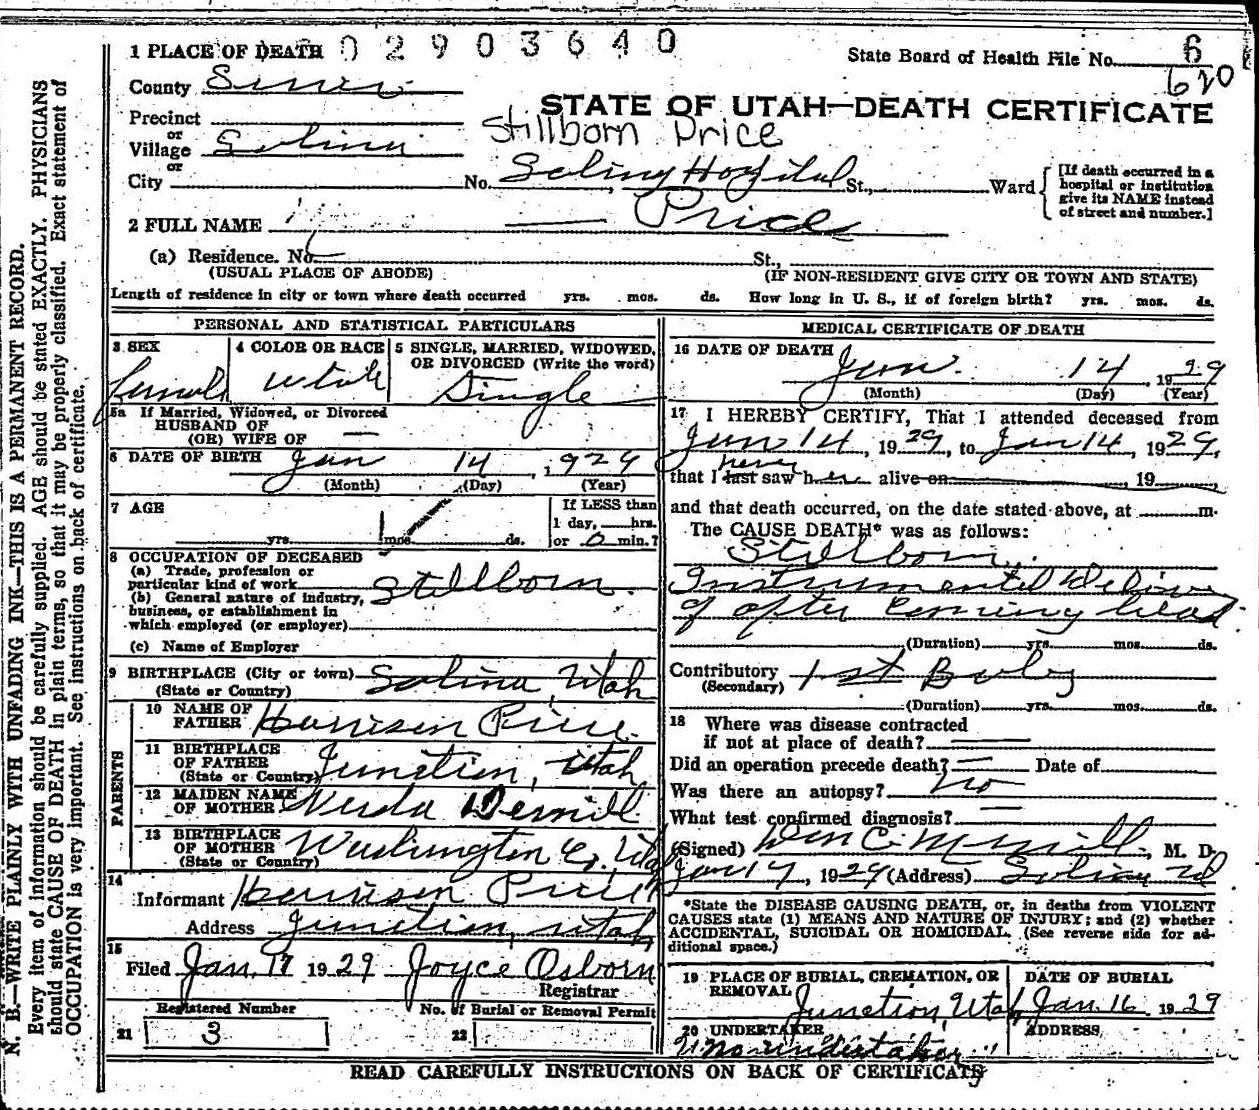 1 PLACE OF DEATH 02903640
State Board of Health File No. 6
620
County Sevier
STATE OF UTAH—DEATH CERTIFICATE
Precinct
or
Village Salina
Stillborn Price
or
City No. Salina Hospital St., Ward
[If death occurred in a
hospital or institution
give its NAME instead
of street and number.]
2 FULL NAME Price
(a) Residence. No. St.,
(USUAL PLACE OF ABODE) (IF NON-RESIDENT GIVE CITY OR TOWN AND STATE)
Length of residence in city or town where death occurred yrs. mos. ds. How long in U. S., if of foreign birth? yrs. mos. ds.
PERSONAL AND STATISTICAL PARTICULARS
3 SEX 4 COLOR OR RACE 5 SINGLE, MARRIED, WIDOWED,
OR DIVORCED (Write the word)
Female White Single
5a If Married, Widowed, or Divorced
HUSBAND OF
(OR) WIFE OF —
6 DATE OF BIRTH Jan 14, 1929
(Month) (Day) (Year)
7 AGE
yrs. mos. ds.
If LESS than
1 day, hrs.
or 0 min.?
8 OCCUPATION OF DECEASED
(a) Trade, profession or
particular kind of work Stillborn
(b) General nature of industry,
business, or establishment in
which employed (or employer)
(c) Name of Employer
9 BIRTHPLACE (City or town) Salina, Utah
(State or Country)
PARENTS
10 NAME OF
FATHER Harrison Price
11 BIRTHPLACE
OF FATHER Junction, Utah
(State or Country)
12 MAIDEN NAME
OF MOTHER
13 BIRTHPLACE
OF MOTHER Washington Co., Utah
(State or Country)
14
Informant Harrison Price
Address Junction, Utah
15
Filed Jan. 17 1929 Joyce Osborn
Registrar
Registered Number No. of Burial or Removal Permit
21 3 22
MEDICAL CERTIFICATE OF DEATH
16 DATE OF DEATH Jan. 14, 1929
(Month) (Day) (Year)
17 I HEREBY CERTIFY, That I attended deceased from
Jan 14, 1929, to Jan 14, 1929,
never
that I last saw her alive on 19
and that death occurred, on the date stated above, at m.
The CAUSE DEATH* was as follows:
Stillborn.
Instrumental Delivery
of after coming head
(Duration) yrs. mos. ds.
Contributory 1st Baby
(Secondary)
(Duration) yrs. mos. ds.
18 Where was disease contracted
if not at place of death? —
Did an operation precede death? — Date of
Was there an autopsy? no
What test confirmed diagnosis? —
(Signed) , M. D.
Jan 17, 1929 (Address) Salina Ut
*State the DISEASE CAUSING DEATH, or, in deaths from VIOLENT
CAUSES state (1) MEANS AND NATURE OF INJURY; and (2) whether
ACCIDENTAL, SUICIDAL OR HOMICIDAL. (See reverse side for ad-
ditional space.)
19 PLACE OF BURIAL, CREMATION, OR
REMOVAL Junction, Utah
DATE OF BURIAL
Jan. 16 1929
20 UNDERTAKER ADDRESS
No undertaker
READ CAREFULLY INSTRUCTIONS ON BACK OF CERTIFICATE
N. B.—WRITE PLAINLY WITH UNFADING INK—THIS IS A PERMANENT RECORD.
Every item of information should be carefully supplied. AGE should be stated EXACTLY. PHYSICIANS
should state CAUSE OF DEATH in plain terms, so that it may be properly classified. Exact statement of
OCCUPATION is very important. See instructions on back of certificate.